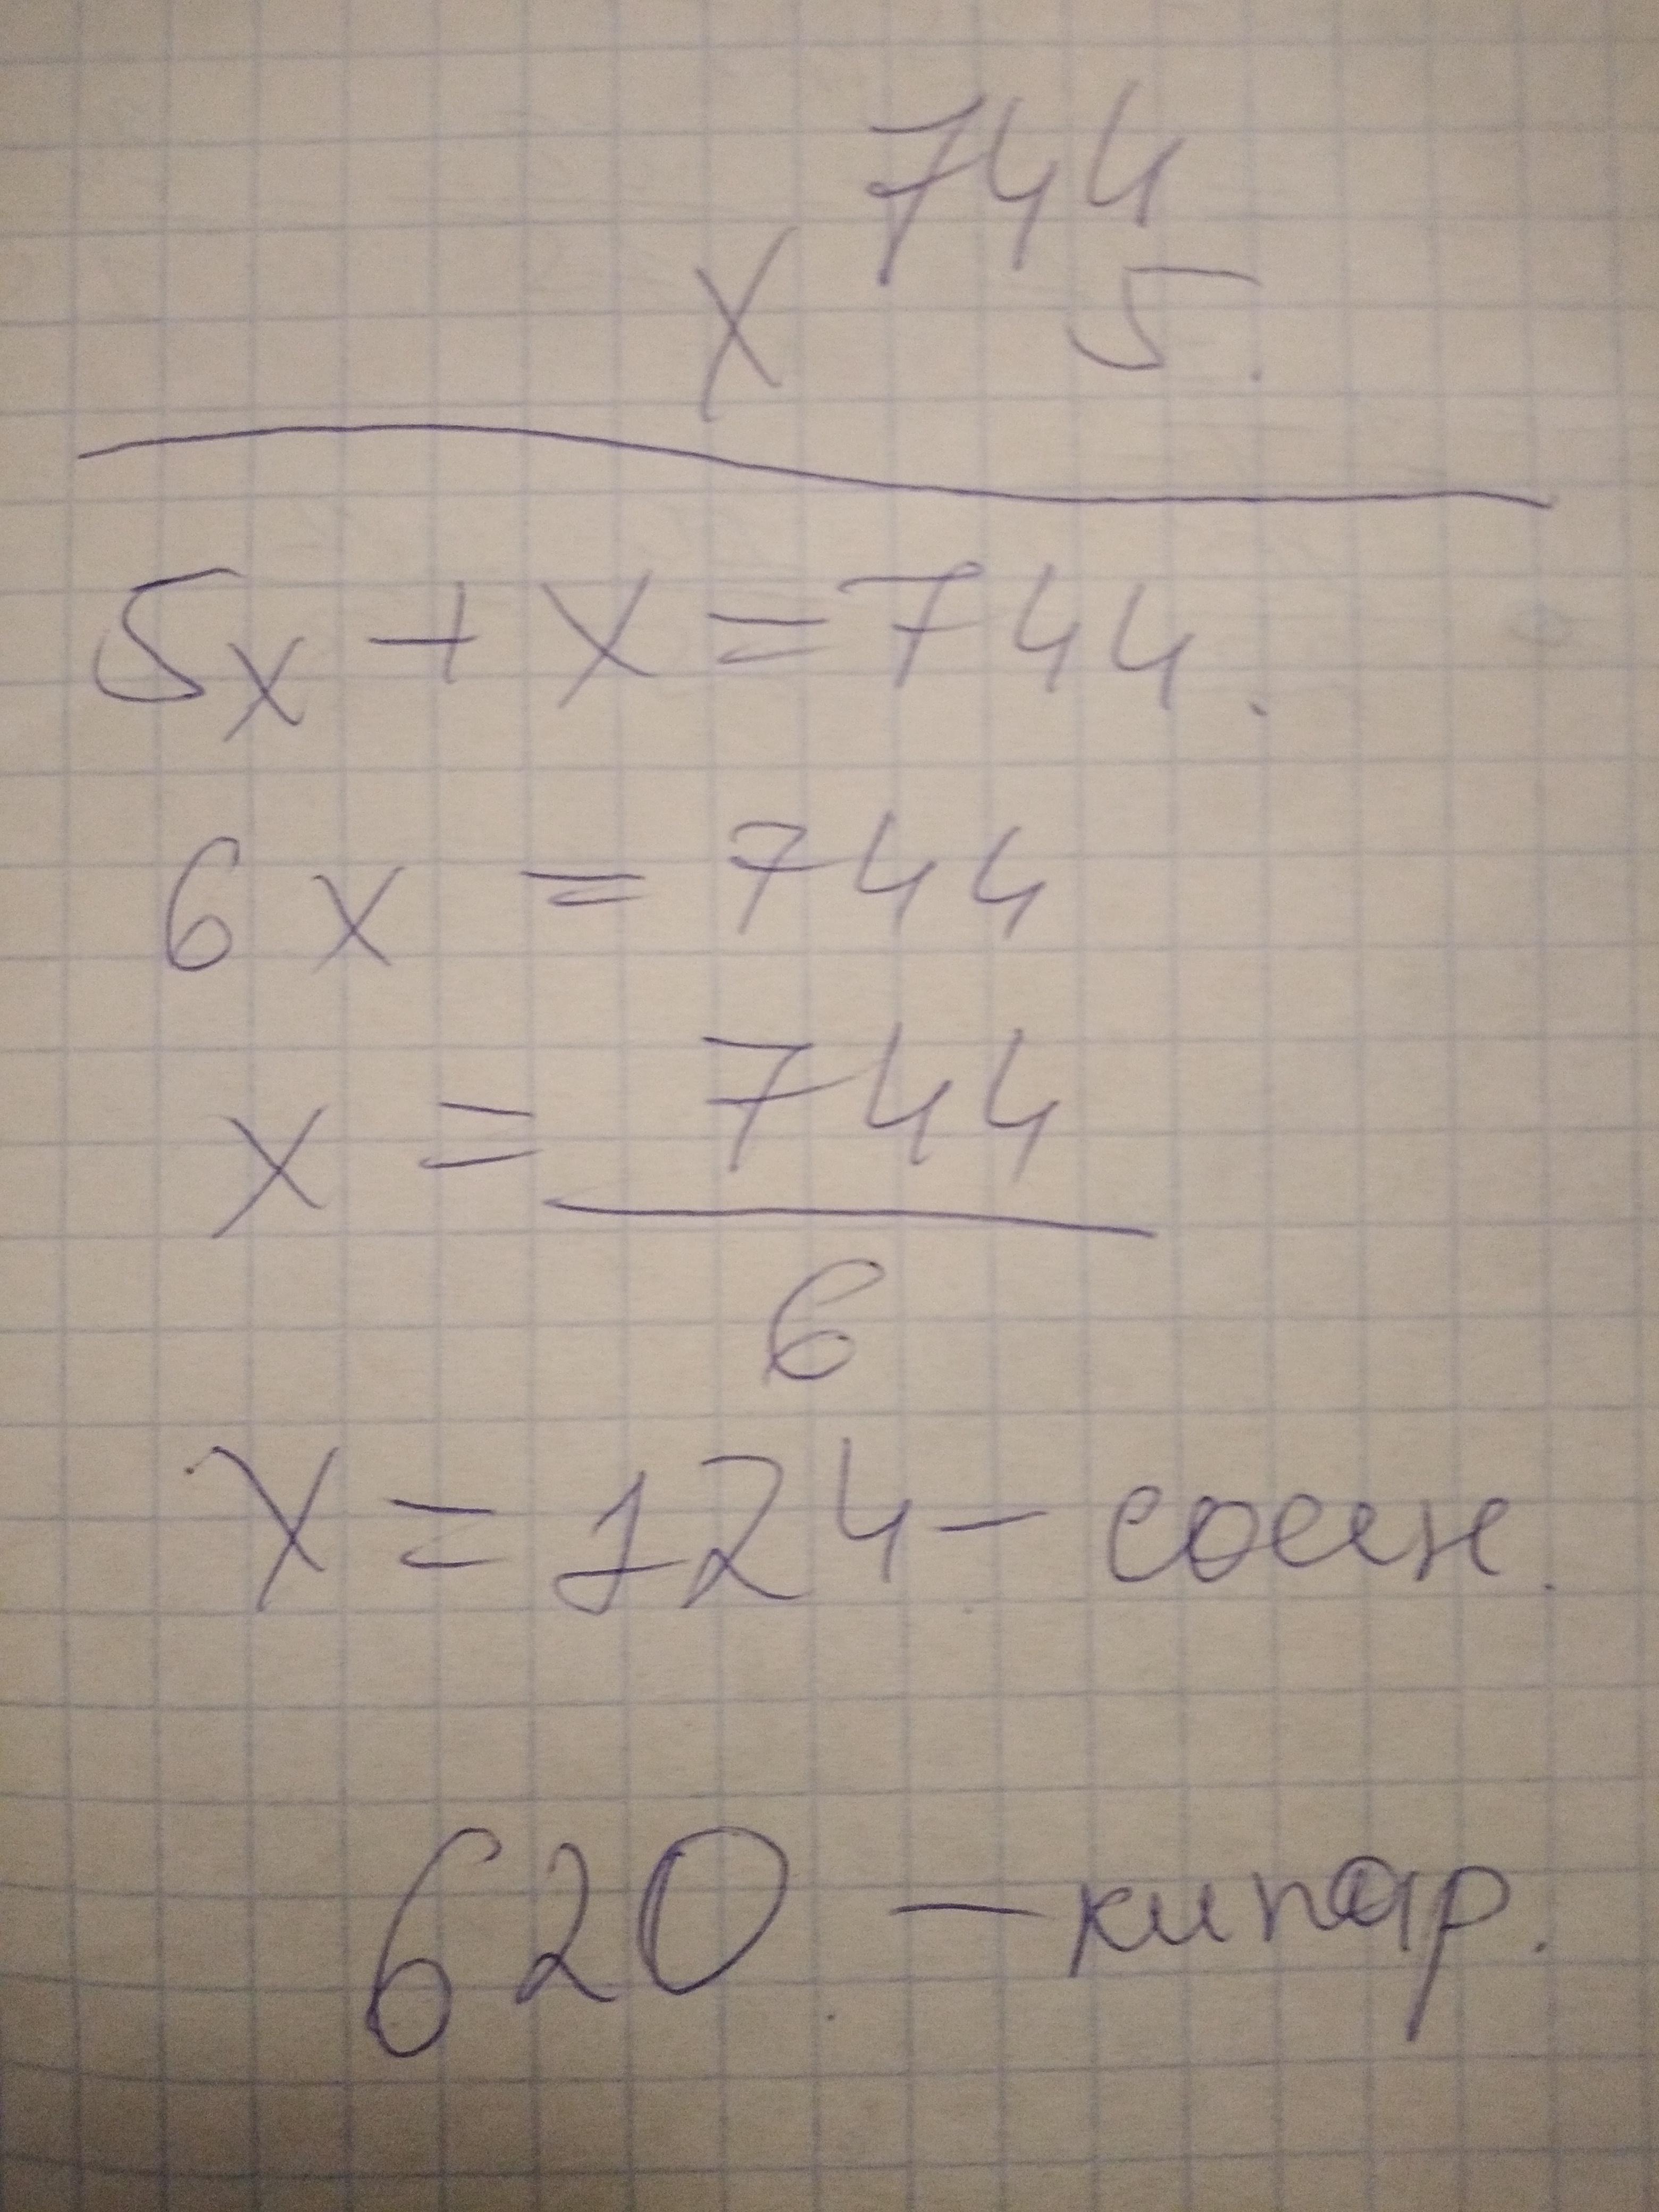 744
x 5.
5x + x = 744.
6x = 744
x = 744
6
x = 124 - сосен.
620 - кипар.